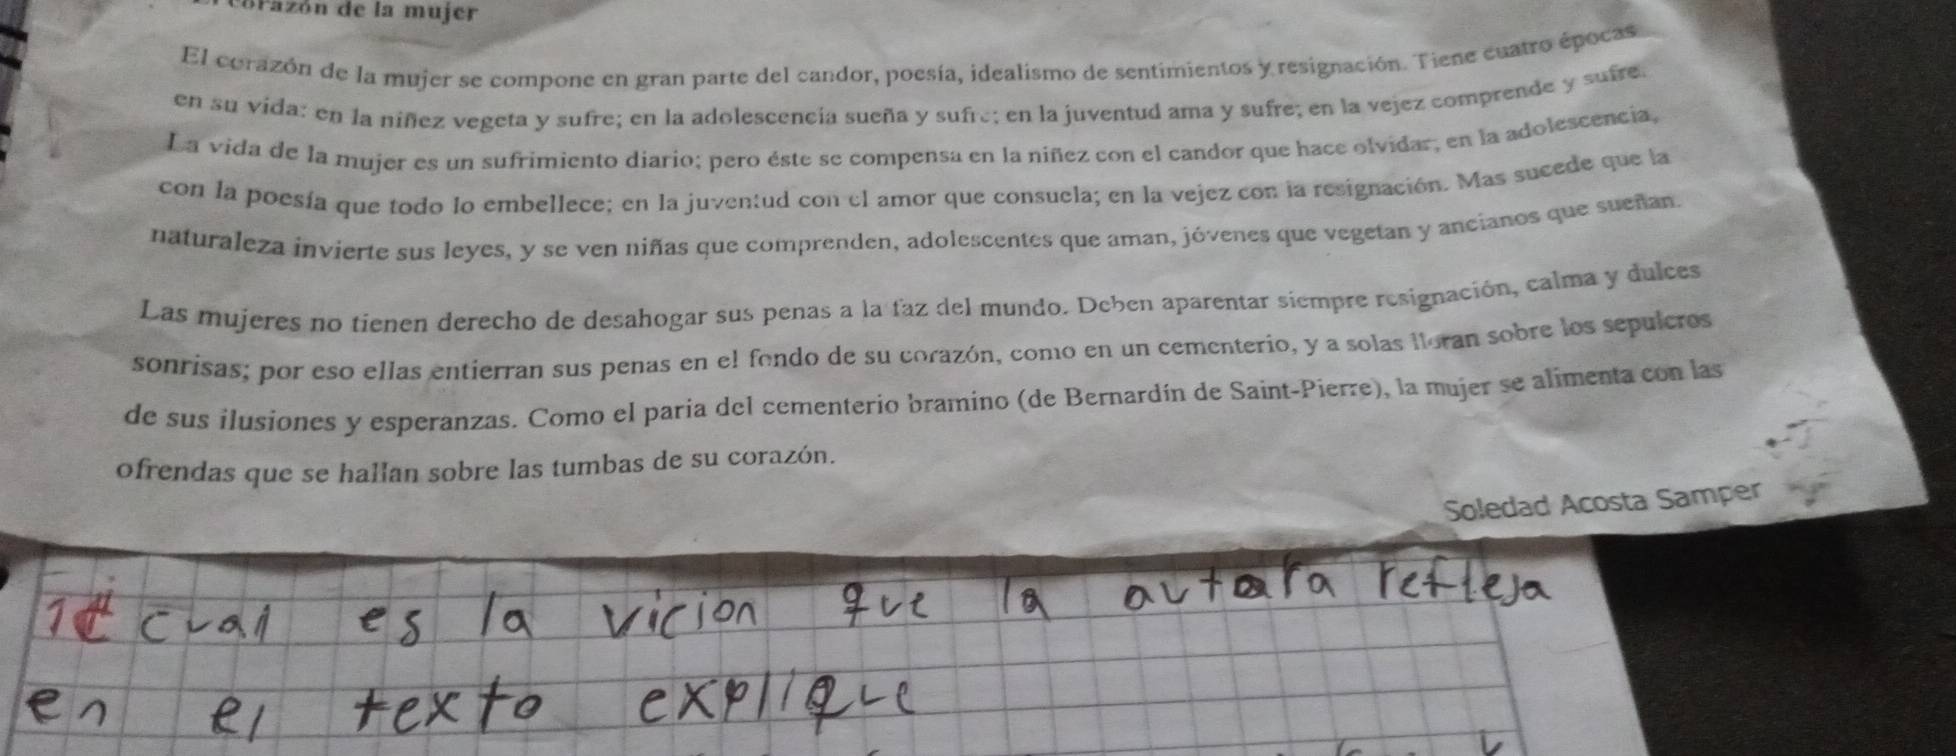 corazón de la mujer
El corazón de la mujer se compone en gran parte del candor, poesía, idealismo de sentimientos y resignación. Tiene cuatro épocas
en su vida: en la niñez vegeta y sufre; en la adolescencia sueña y sufre; en la juventud ama y sufre; en la vejez comprende y sufre.
La vida de la mujer es un sufrimiento diario; pero éste se compensa en la niñez con el candor que hace olvidar; en la adolescencia,
con la poesía que todo lo embellece; en la juventud con el amor que consuela; en la vejez con la resignación. Mas sucede que la
naturaleza invierte sus leyes, y se ven niñas que comprenden, adolescentes que aman, jóvenes que vegetan y ancianos que sueñan.
Las mujeres no tienen derecho de desahogar sus penas a la faz del mundo. Deben aparentar siempre resignación, calma y dulces
sonrisas; por eso ellas entierran sus penas en el fondo de su corazón, como en un cementerio, y a solas lloran sobre los sepulcros
de sus ilusiones y esperanzas. Como el paria del cementerio bramino (de Bernardín de Saint-Pierre), la mujer se alimenta con las
ofrendas que se hallan sobre las tumbas de su corazón.
Soledad Acosta Samper
cual es la vicion que la autora refleja
en el texto explique